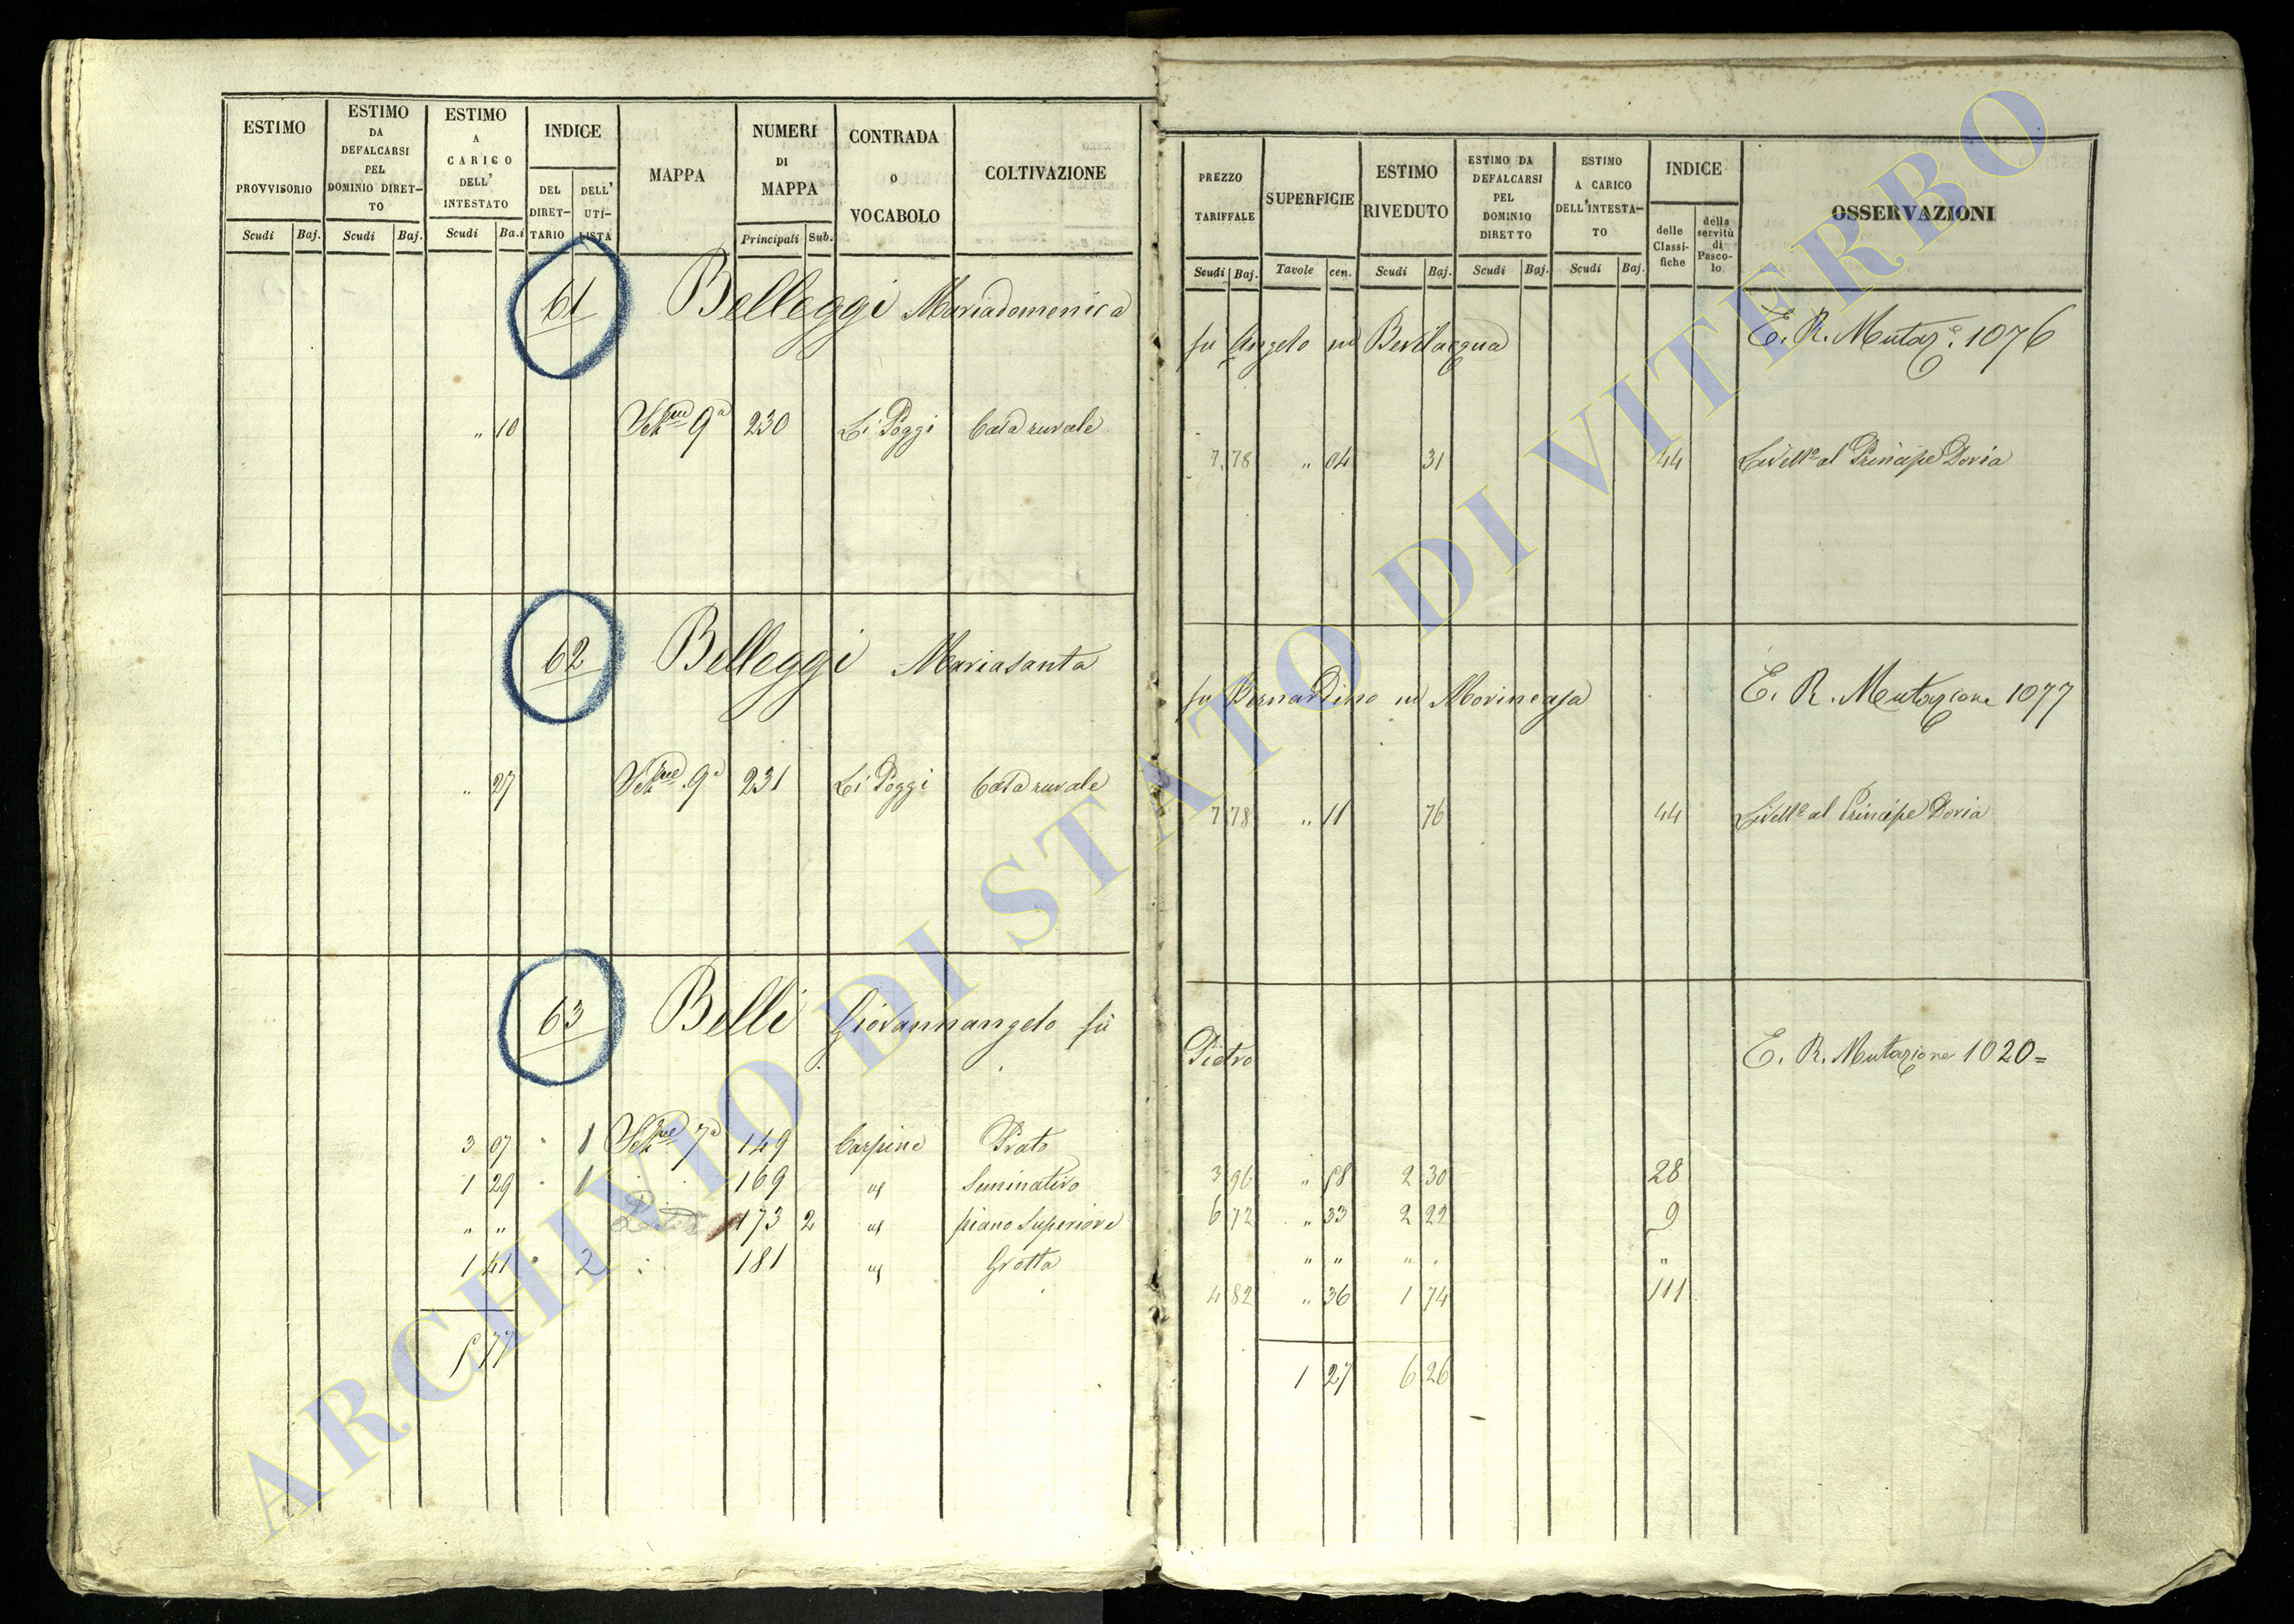 ESTIMO PROVVISORIO
ESTIMO DA DEFALCARSI PEL DOMINIO DIRET-TO
ESTIMO A CARICO DELL' INTESTATO
INDICE
DEL DIRET-TARIO
DELL' UTI-LISTA
MAPPA
NUMERI DI MAPPA
CONTRADA O VOCABOLO
COLTIVAZIONE
Scudi Baj. Scudi Baj. Scudi Ba.i Principali Sub.
61 Belleggi Mariadomenica
„ 10 Sez.ne 9a 230 Li Poggi Casa rurale
62 Belleggi Mariasanta
„ 27 Sez.ne 9a 231 Li Poggi Casa rurale
63 Belli Giovannangelo fù
3 07 1 Sez.ne 7a 149 Carpine Prato
1 29 1 169 Seminativo
„ „ 173 2 piano Superiore
1 41 2 181 Grotta
5 77
PREZZO TARIFFALE
SUPERFICIE
ESTIMO RIVEDUTO
ESTIMO DA DEFALCARSI PEL DOMINIO DIRETTO
ESTIMO A CARICO DELL'INTESTA-TO
INDICE
delle Classi-fiche
della servitù di Pasco-lo
OSSERVAZIONI
Scudi Baj. Tavole cen. Scudi Baj. Scudi Baj. Scudi Baj.
fù Angelo in Bevilacqua E. R. Mutaze. 1076
7 78 „ 04 31 44 Livello al Principe Doria
fù Bernardino in E. R. Mutazione 1077
7 78 „ 11 76 44 Livello al Principe Doria
Pietro E. R. Mutazione 1020=
3 96 „ 58 2 30 28
6 72 „ 33 2 22 9
„ „ „ . „
4 82 „ 36 1 74 111
1 27 6 26
ARCHIVIO DI STATO DI VITERBO